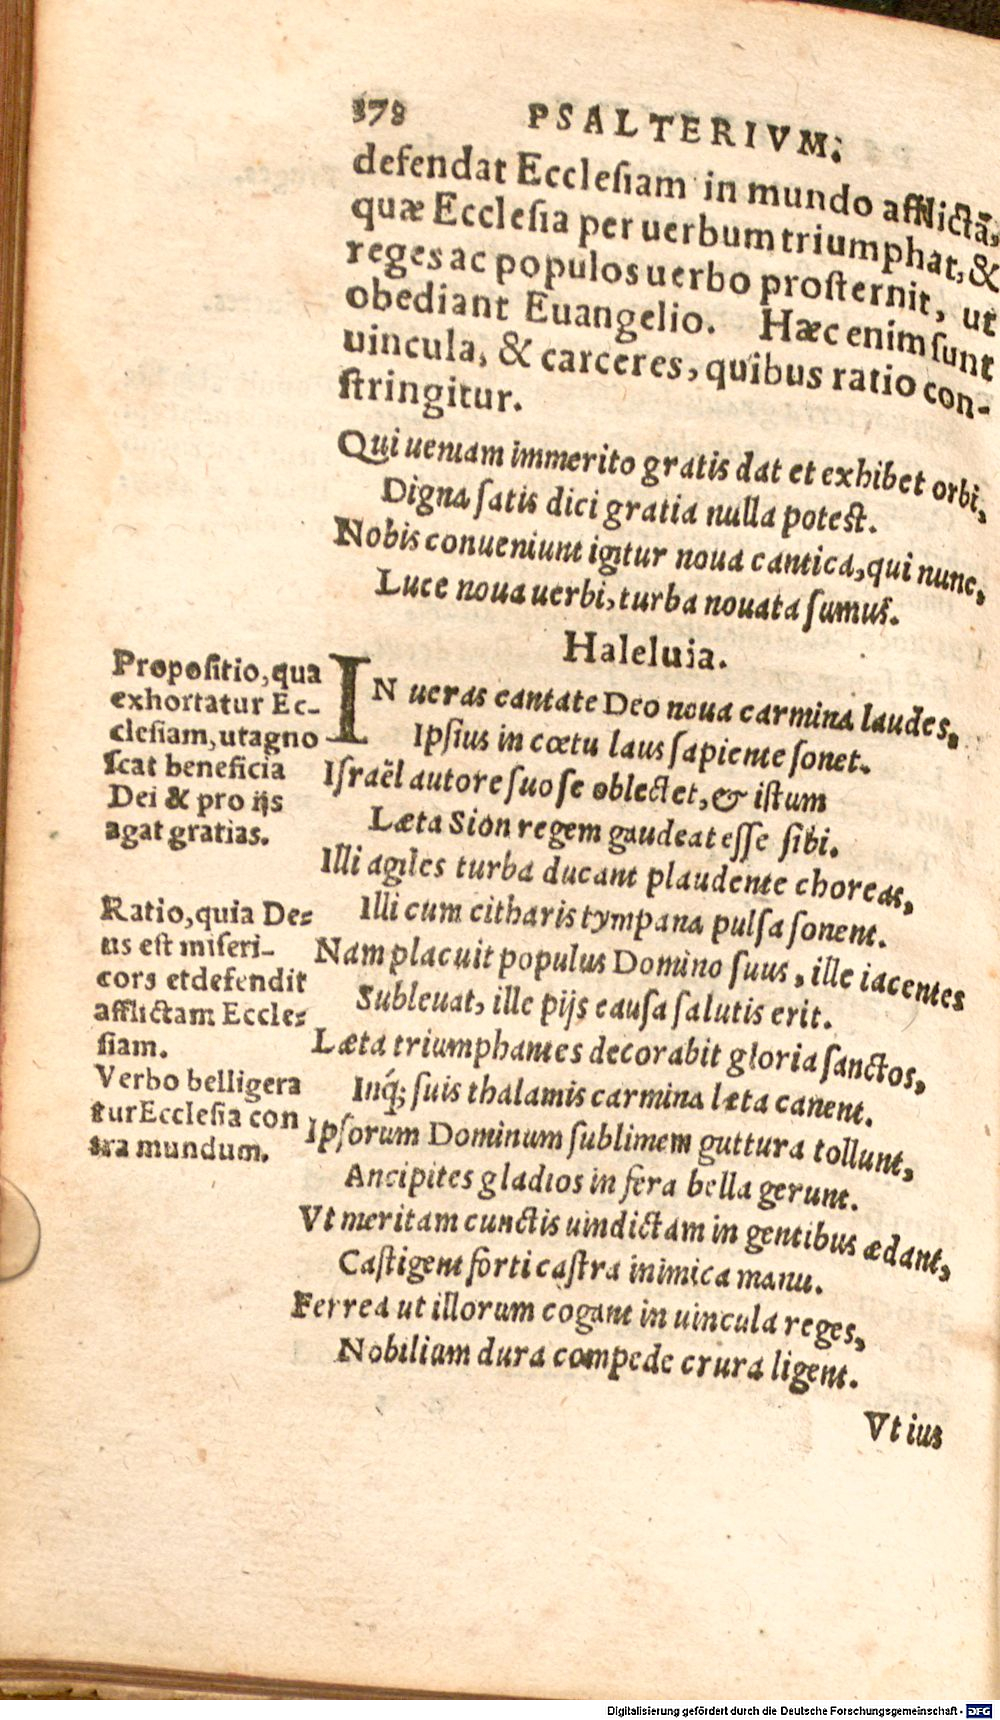 378 PSALTERIVM.
defendat Ecclesiam in mundo afflictã,
quæ Ecclesia per uerbum triumphat, &
reges ac populos uerbo prosternit, ut
obediant Euangelio. Hæc enim sunt
uincula, & carceres, quibus ratio con-
stringitur.
Qui ueniam immerito gratis dat et exhibet orbi,
Digna satis dici gratia nulla potest.
Nobis conueniunt igitur noua cantica, qui nunc,
Luce noua uerbi, turba nouata sumus.
Haleluia.
Propositio, qua
exhortatur Ec-
clesiam, ut agno
scat beneficia
Dei & pro ijs
agat gratias.
IN ueras cantate Deo noua carmina laudes,
Ipsius in cœtu laus sapiente sonet.
Israël autore suo se oblectet, & istum
Læta Sion regem gaudeat esse sibi.
Illi agiles turba ducant plaudente choreas,
Illi cum citharis tympana pulsa sonent.
Ratio, quia De-
us est miseri-
cors et defendit
afflictam Eccle-
siam.
Nam placuit populus Domino suus, ille iacentes
Subleuat, ille pijs causa salutis erit.
Læta triumphantes decorabit gloria sanctos,
Inq́; suis thalamis carmina læta canent.
Verbo belligera
tur Ecclesia con
tra mundum.
Ipsorum Dominum sublimem guttura tollunt,
Ancipites gladios in fera bella gerunt.
Vt meritam cunctis uindictam in gentibus ædant,
Castigent forti castra inimica manu.
Ferrea ut illorum cogant in uincula reges,
Nobilium dura compede crura ligent.
Vt ius
Digitalisierung gefördert durch die Deutsche Forschungsgemeinschaft - DFG